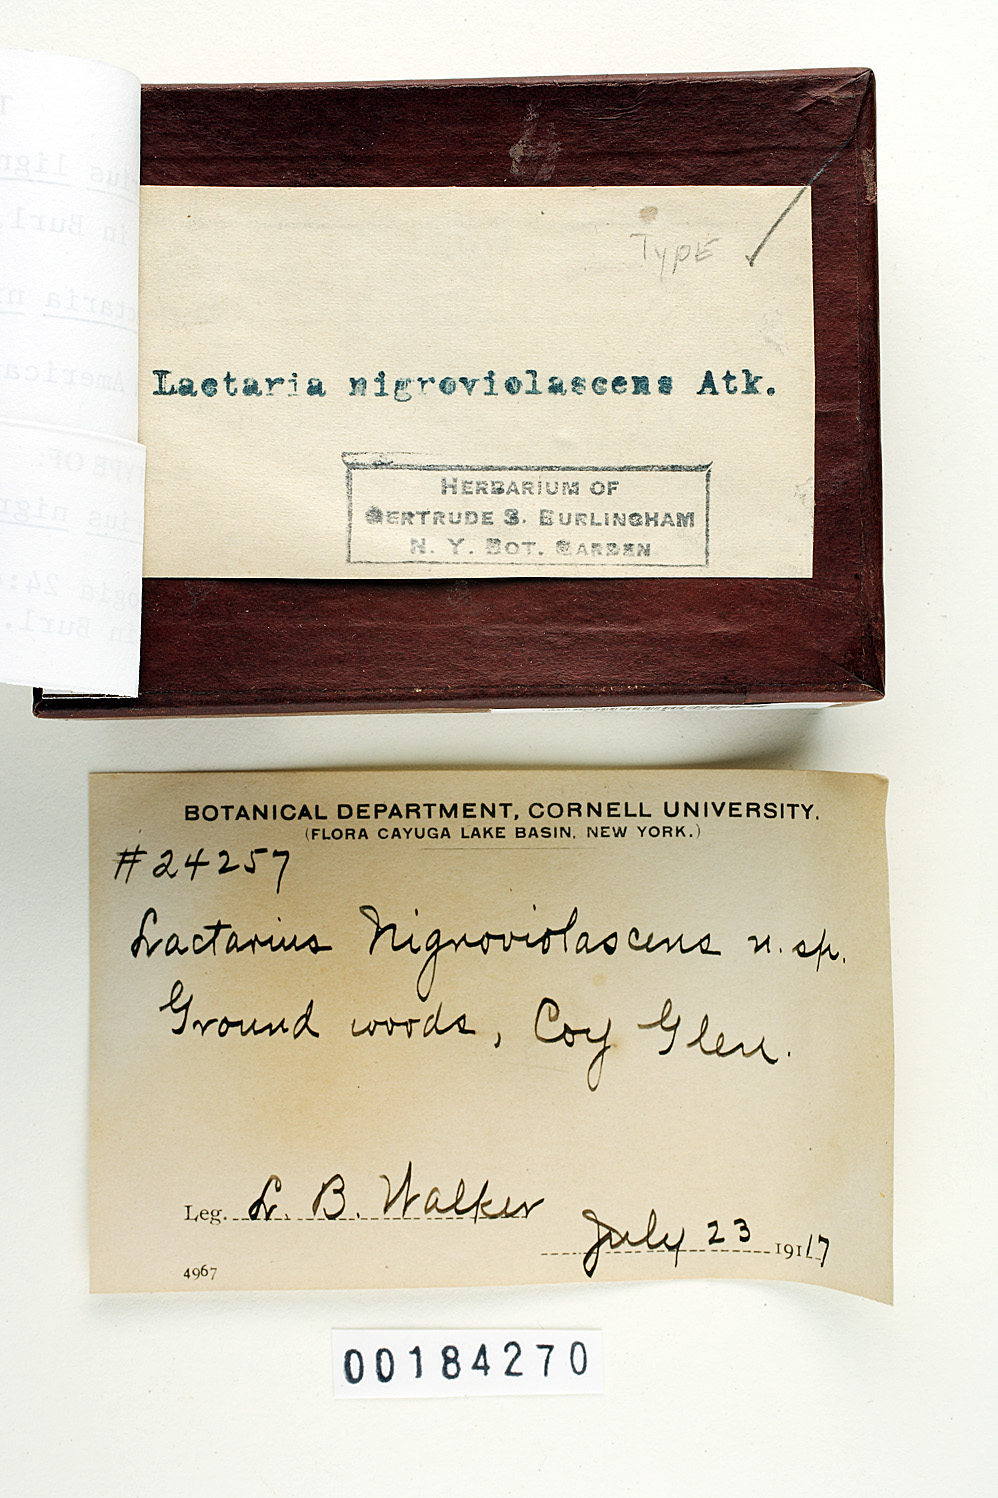 Type
Lactaria nigroviolascens Atk.
HERBARIUM OF
GERTRUDE S. BURLINGHAM
N. Y. BOT. GARDEN
BOTANICAL DEPARTMENT, CORNELL UNIVERSITY.
(FLORA CAYUGA LAKE BASIN, NEW YORK.)
#24257
Lactarius Nigroviolascens n. sp.
Ground woods, Coy Glen.
Leg. L. B. Walker
July 23 1917
4967
00184270